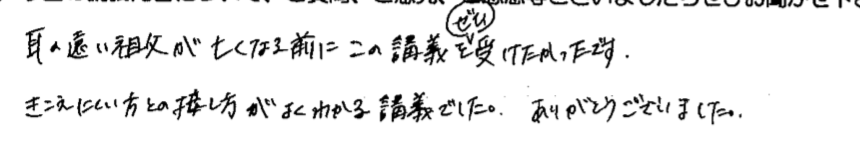 耳の遠い祖父が亡くなる前にこの講義をぜひ受けたかったです.
きこえにくい方との接し方がよくわかる講義でした。ありがとうございました。